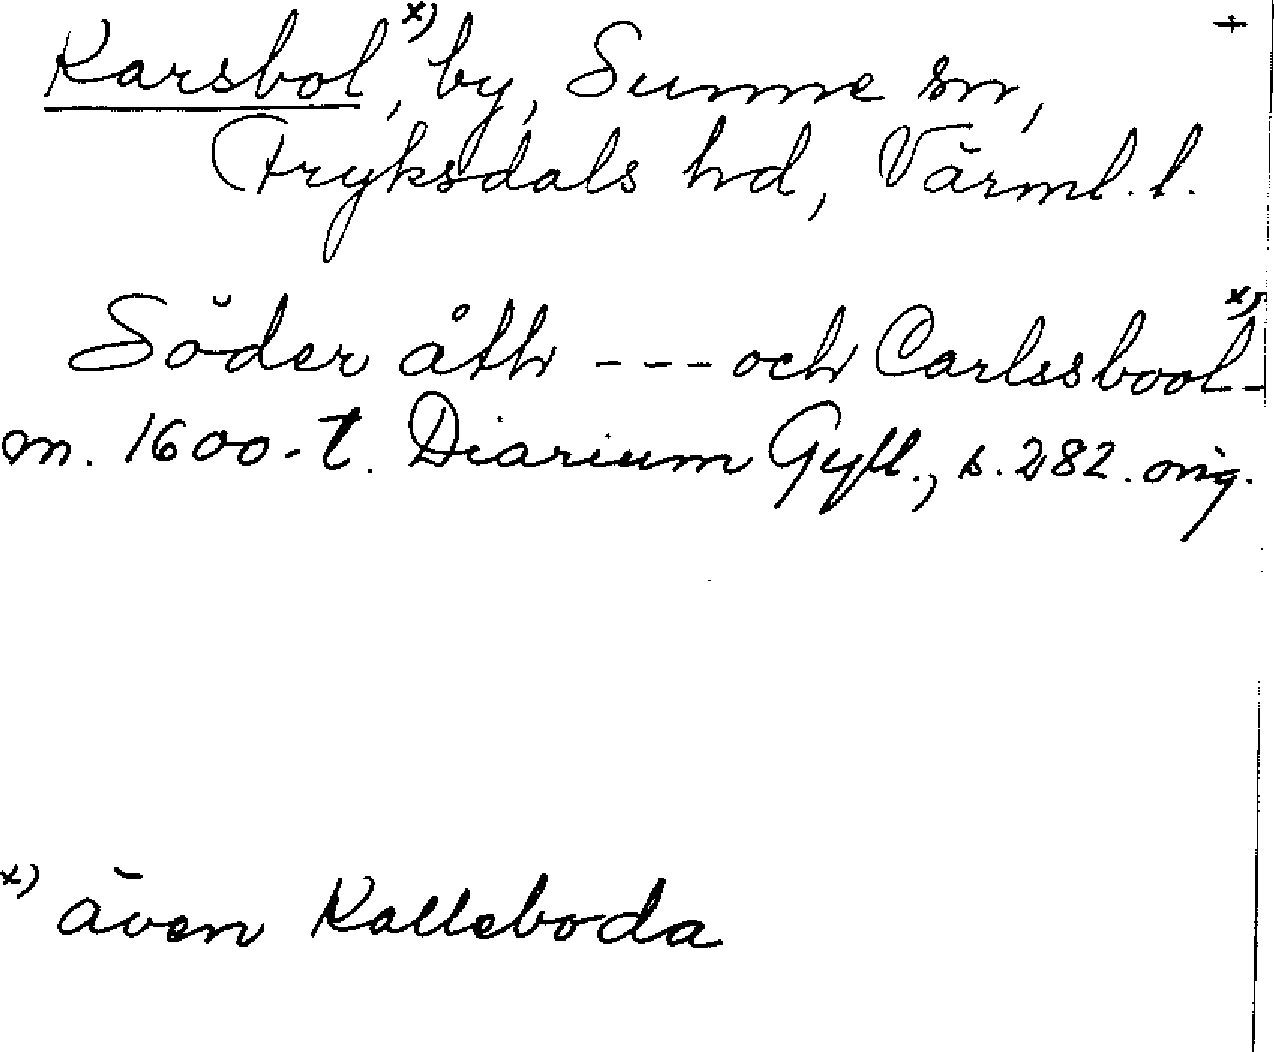 Karsbol,ˣ⁾ by, Sunne sn, +
Fryksdals hd, Värml. l.
Söder åth --- och Carlssbool-ˣ⁾
m. 1600-t. Diarium Gyll., s. 282. orig.
ˣ⁾ även Kalleboda